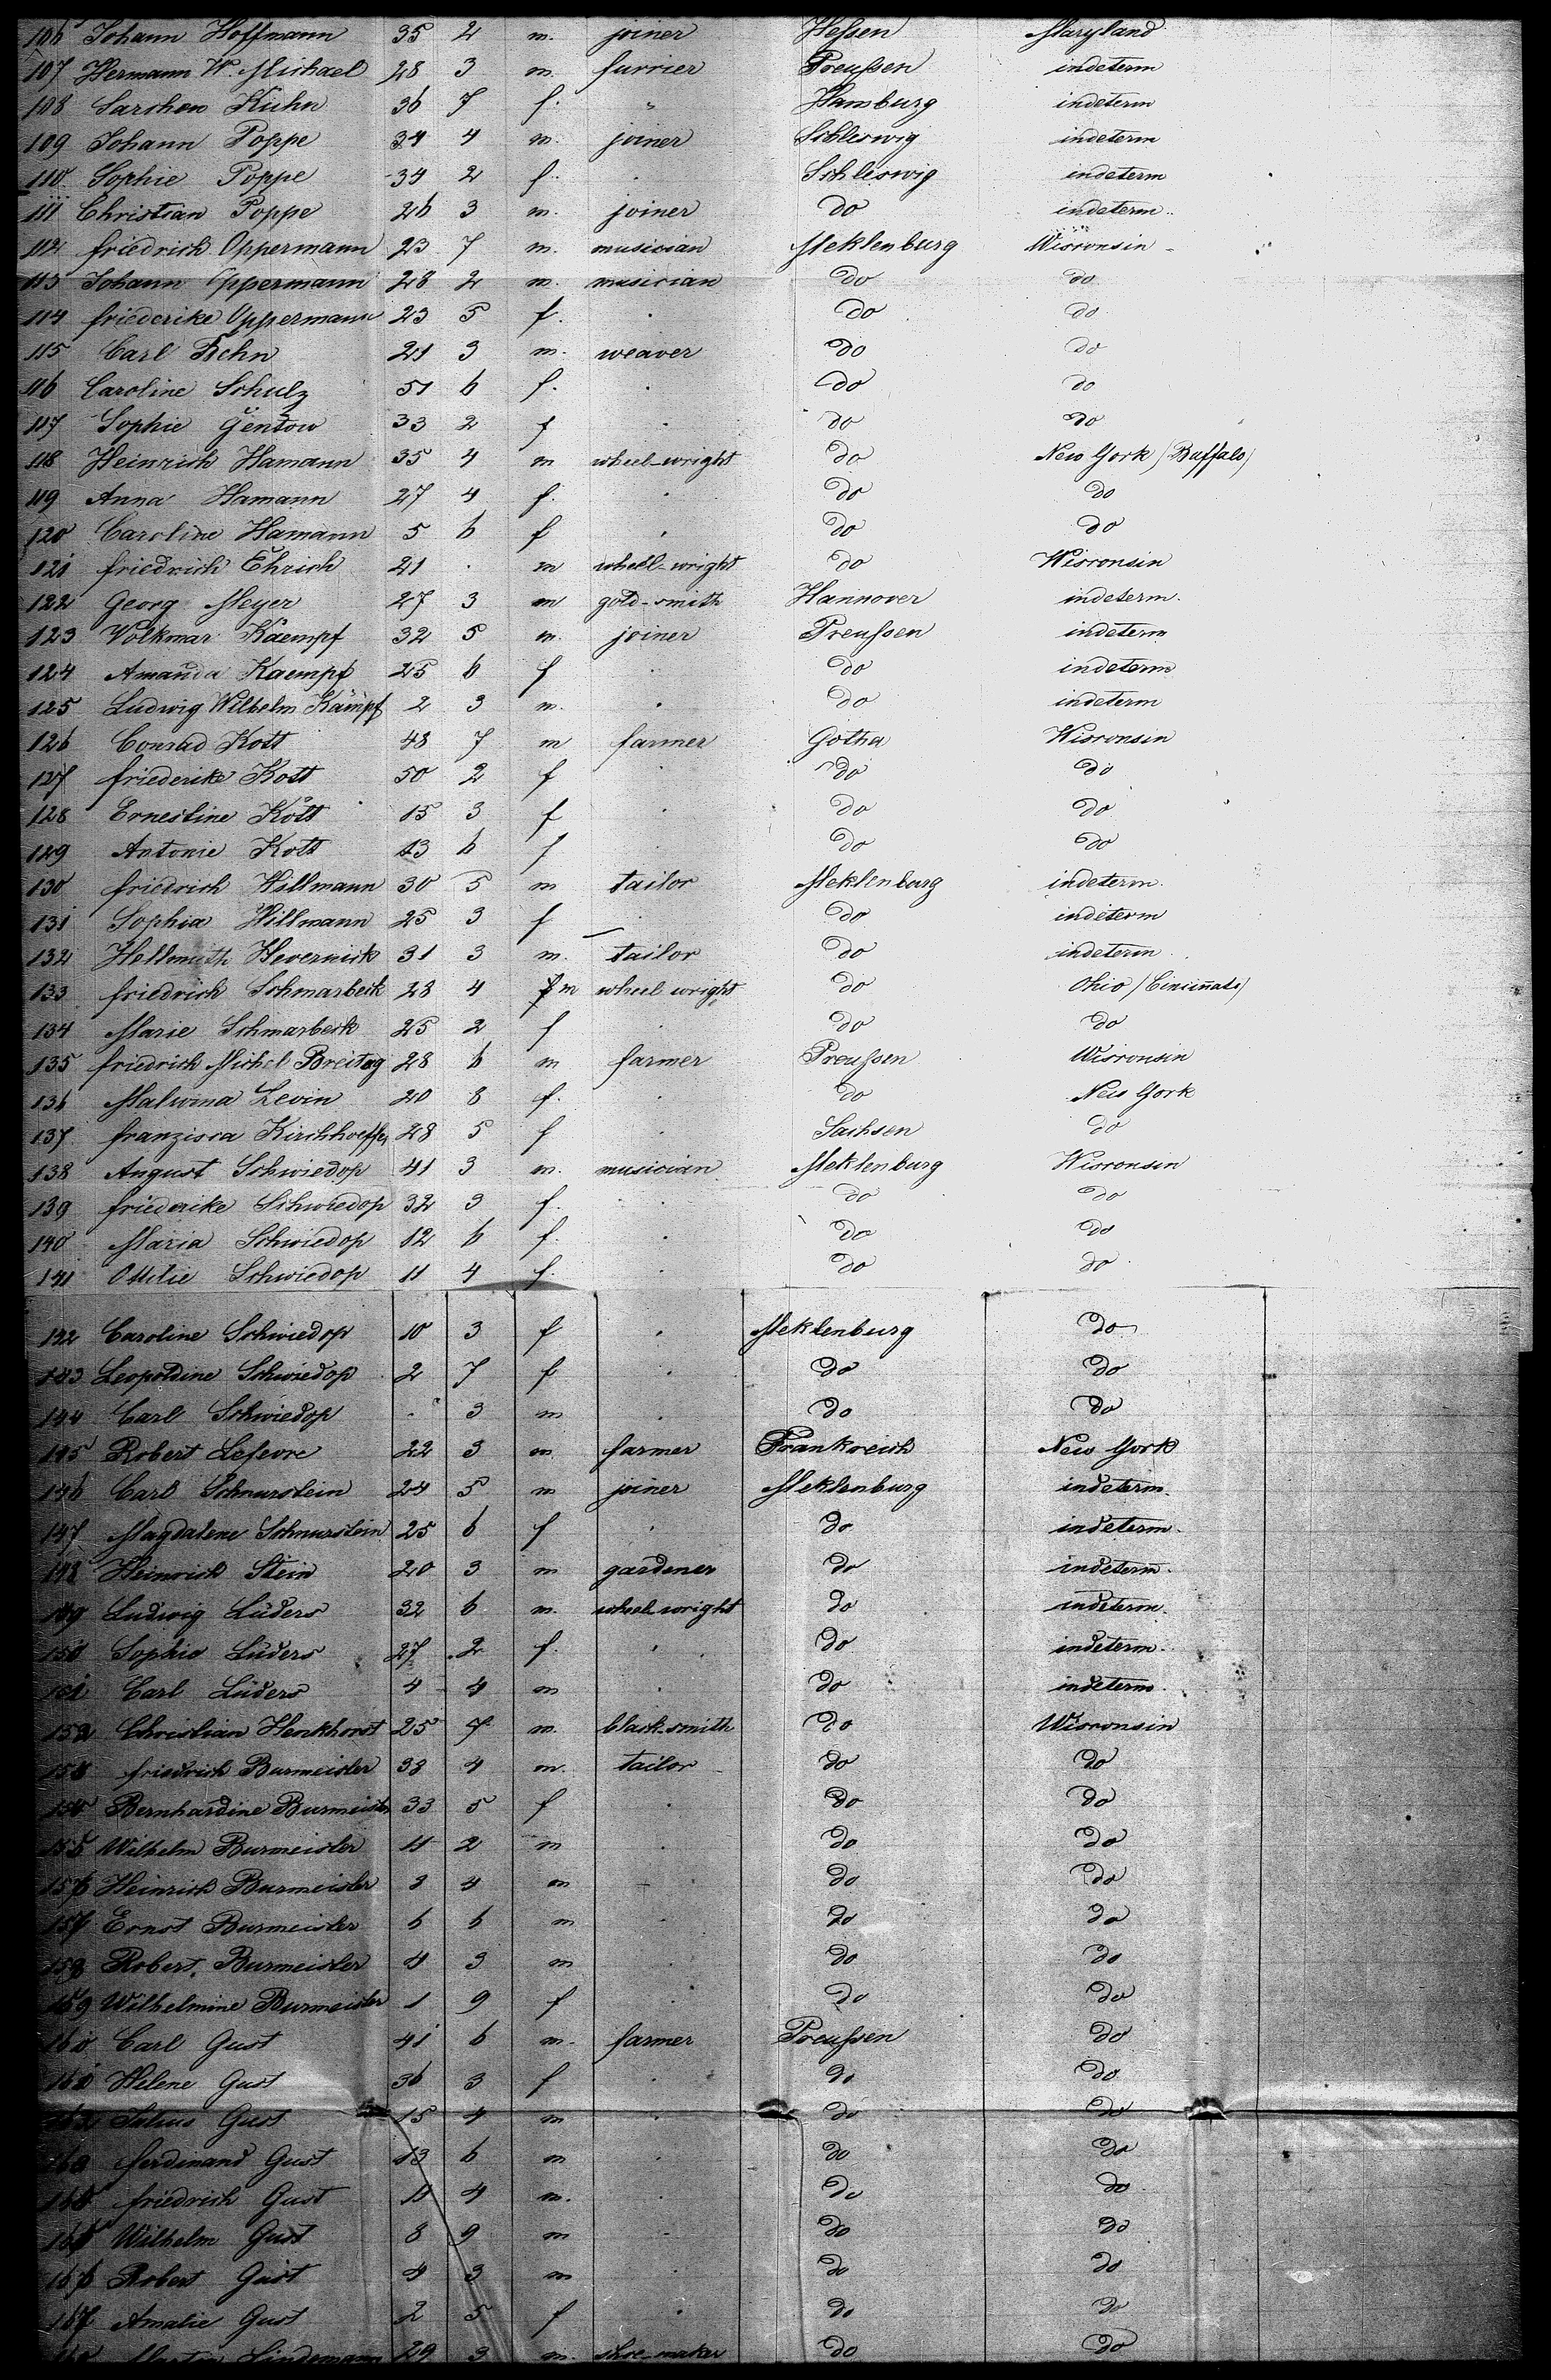 106 Johann Hoffmann 35 2 m. joiner Hessen Maryland
107 Hermann W. Michael 28 3 m. furrier Preussen indeterm
108 Sarchen Kühn 36 7 f. " Hamburg indeterm
109 Johann Poppe 34 4 m. joiner Schleswig indeterm
110 Sophie Poppe 34 2 f. Schleswig indeterm
111 Christian Poppe 26 3 m. joiner do indeterm.
112 friedrich Oppermann 23 7 m. musician Meklenburg Wisconsin
113 Johann Oppermann 28 2 m. musician do do
114 friederike Oppermann 23 5 f. do do
115 Carl 21 3 m. weaver do do
116 Caroline Schulz 51 6 f. do do
117 Sophie Gentow 33 2 f do do
118 Heinrich Hamann 35 4 m wheel-wright do New York (Buffalo)
119 Anna Hamann 27 4 f. do do
120 Caroline Hamann 5 6 f do do
121 friedrich Ehrich 21 . m wheel-wright do Wisconsin
122 Georg Meyer 27 3 m gold-smith Hannover indeterm.
123 Volkmar Kaempf 32 5 m. joiner Preussen indeterm
124 Amanda Kaempf 25 6 f do indeterm
125 Ludwig Wilhelm Kämpf 2 3 m. do indeterm
126 Conrad Kott 48 7 m farmer Gotha Wisconsin
127 friederike Kott 50 2 f do do
128 Ernestine Kott 15 3 f do do
129 Antonie Kott 13 6 f do do
130 friedrich Hillmann 30 5 m tailor Meklenburg indeterm.
131 Sophia Hillmann 25 3 f do indeterm
132 Hellmuth Hevernick 31 3 m. tailor do indeterm
133 friedrich Schmarbeck 28 4 m wheel wright do Ohio (Cincinnati)
134 Marie Schmarbeck 25 2 f do do
135 friedrich Michel Breitag 28 6 m farmer Preussen Wisconsin
136 Malwina Levin 20 8 f. do New York
137 franzisca Kirchhoeffer 28 5 f Sachsen do
138 August Schwiedop 41 3 m. musician Meklenburg Wisconsin
139 friederike Schwiedop 32 3 f. do do
140 Maria Schwiedop 12 6 f. do do
141 Ottilie Schwiedop 11 4 f. do do
142 Caroline Schwiedop 10 3 f Meklenburg do
143 Leopoldine Schwiedop 2 7 f do do
144 Carl Schwiedop . 3 m do do
145 Robert Lefevre 22 3 m farmer Frankreich New York
146 Carl Schnurstein 24 5 m joiner Meklenburg indeterm.
147 Magdalene Schnurstein 25 6 f do indeterm.
148 Heinrich Stein 20 3 m gardener do indeterm.
149 Ludwig Lüders 32 6 m. wheel-wright do indeterm.
150 Sophia Lüders 27 2 f. do indeterm.
151 Carl Lüders 4 4 m do indeterm.
152 Christian Henkhorst 25 7 m. black-smith do Wisconsin
153 friedrich Burmeister 33 4 m. tailor do do
154 Bernhardine Burmeister 33 5 f do do
155 Wilhelm Burmeister 11 2 m do do
156 Heinrich Burmeister 8 4 m do do
157 Ernst Burmeister 6 6 m do do
158 Robert Burmeister 4 3 m do do
159 Wilhelmine Burmeister 1 9 f do do
160 Carl Gust 41 6 m. farmer Preussen do
161 Helene Gust 36 3 f do do
162 Julius Gust 15 4 m do do
163 ferdinand Gust 13 6 m do do
164 friedrich Gust 11 4 m. do do
165 Wilhelm Gust 8 9 m do do
166 Robert Gust 4 3 m do do
167 Amalie Gust 2 5 f do do
Lindemann 29 3 m. shoe-maker do do